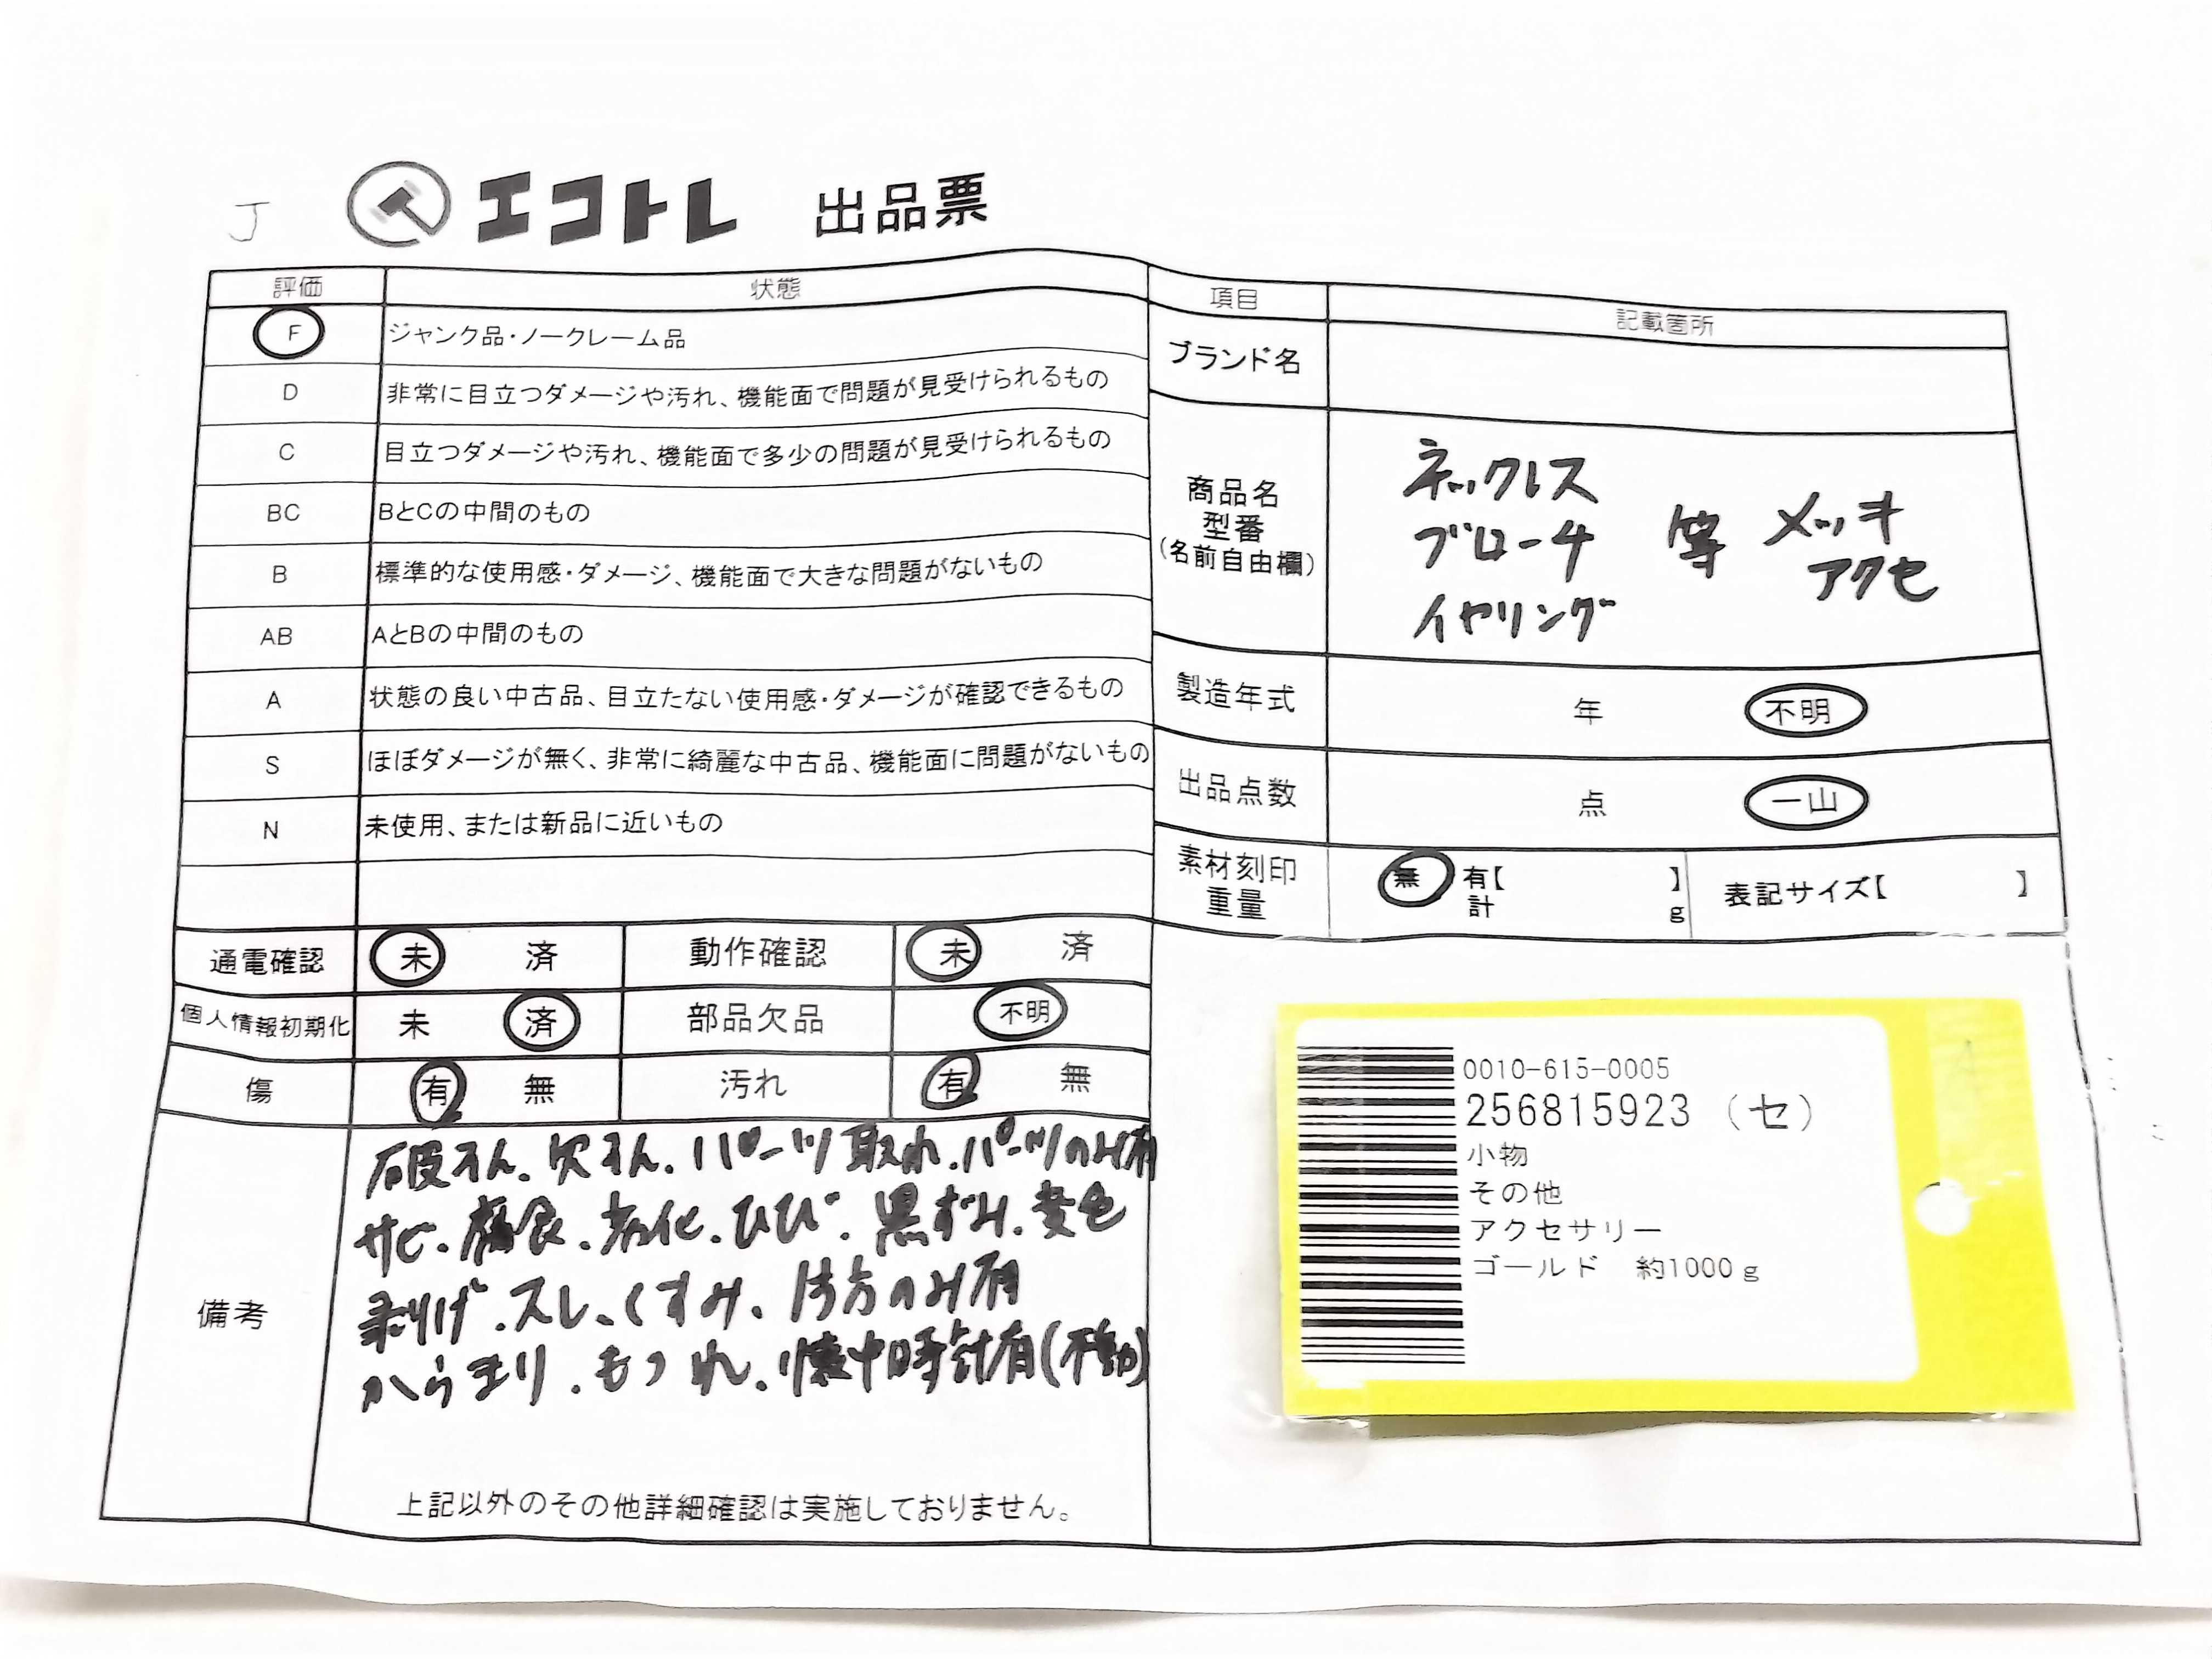 J
エコトレ 出品票
評価 状態
F ジャンク品・ノークレーム品
D 非常に目立つダメージや汚れ、機能面で問題が見受けられるもの
C 目立つダメージや汚れ、機能面で多少の問題が見受けられるもの
BC BとCの中間のもの
B 標準的な使用感・ダメージ、機能面で大きな問題がないもの
AB AとBの中間のもの
A 状態の良い中古品、目立たない使用感・ダメージが確認できるもの
S ほぼダメージが無く、非常に綺麗な中古品、機能面に問題がないもの
N 未使用、または新品に近いもの
通電確認 未 済 動作確認 未 済
個人情報初期化 未 済 部品欠品 不明
傷 有 無 汚れ 有 無
備考
破そん、欠そん、パーツ取れ、パーツのみ有
サビ、腐食、劣化、ひび、黒ずみ、変色
剥げ、スレ、くすみ、片方のみ有
からまり、もつれ、懐中時計有(不動)
上記以外のその他詳細確認は実施しておりません。
項目 記載箇所
ブランド名
商品名
型番
(名前自由欄)
ネックレス
ブローチ 等 メッキ
アクセ
イヤリング
製造年式 年 不明
出品点数 点 一山
素材刻印 無 有【 】
重量 計 g
表記サイズ【 】
0010-615-0005
256815923 (セ)
小物
その他
アクセサリー
ゴールド 約1000g